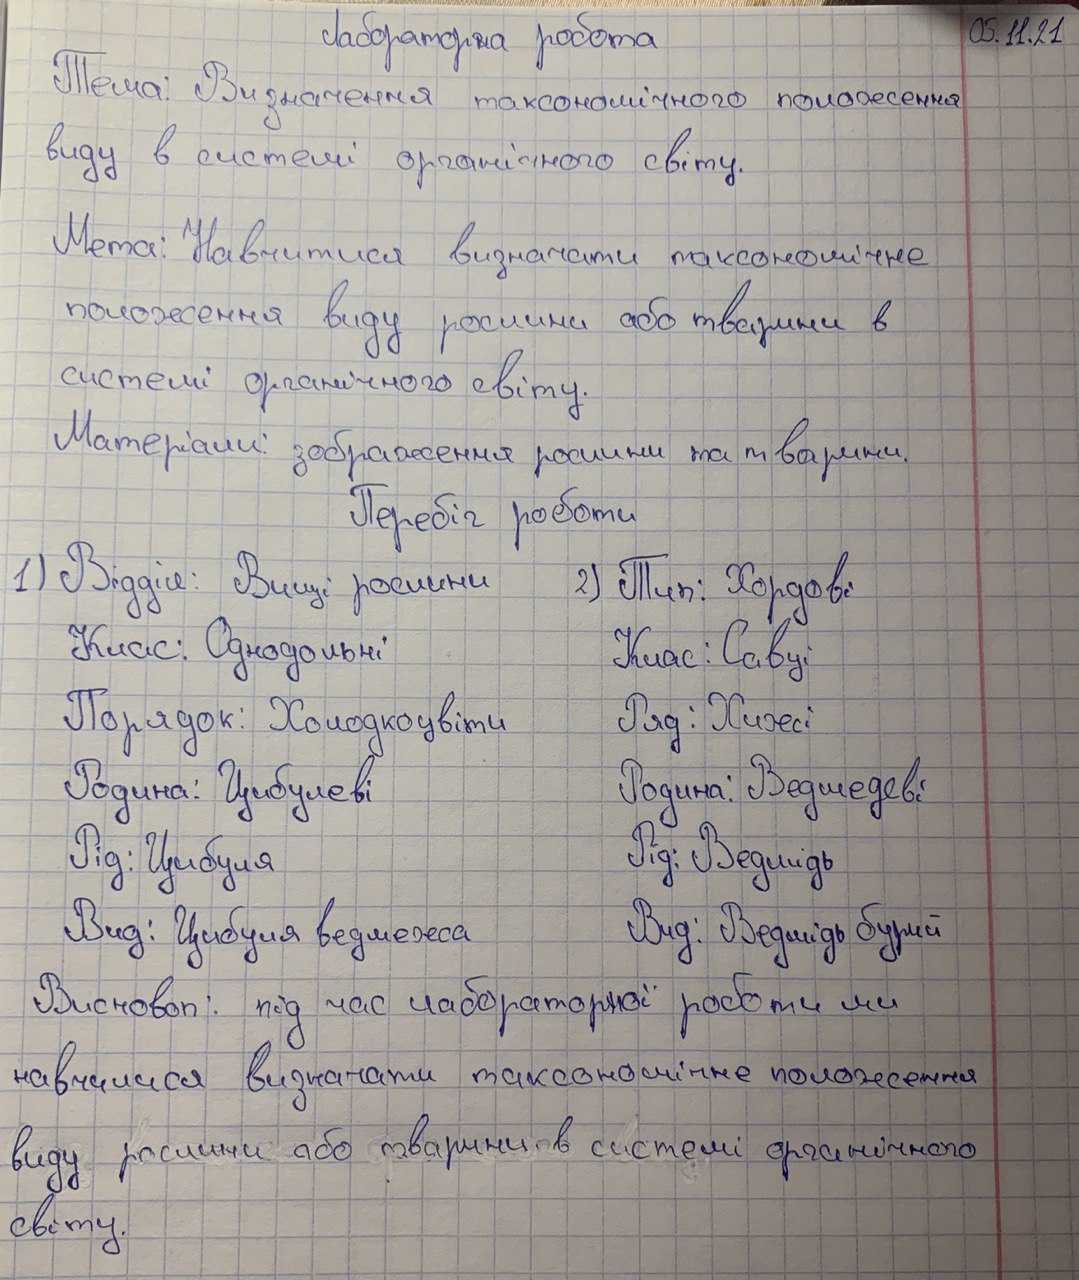 Лабораторна робота 05.11.21
Тема: Визначення таксономічного положення
виду в системі органічного світу.
Мета: Навчитися визначати таксономічне
положення виду рослини або тварини в
системі органічного світу.
Матеріали: зображення рослини та тварини.
Перебіг роботи
1) Відділ: Вищі рослини 2) Тип: Хордові
Клас: Однодольні Клас: Савці
Порядок: Холодкоцвіти Ряд: Хижі
Родина: Цибулеві Родина: Ведмедеві
Рід: Цибуля Рід: Ведмідь
Вид: Цибуля ведмежа Вид: Ведмідь бурий
Висновоп: під час лабораторної роботи ми
навчилися визначати таксономічне положення
виду рослини або тварини в системі органічного
світу.